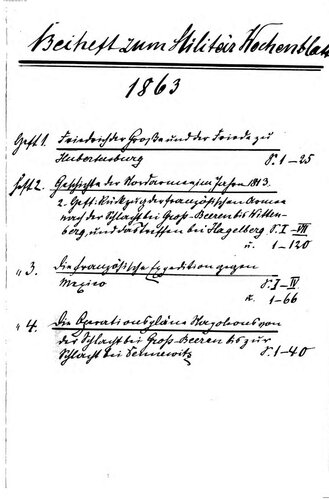 Beiheft zum Militär Wochenblatt
1863
Heft 1. Friedrich der Große und der Friede zu
Hubertusburg S. 1–25
Heft 2. Geschichte der Nordarmee im Jahre 1813.
2. Heft: Rückzug der französischen Armee
nach der Schlacht bei Groß-Beeren bis Witten-
berg, und das Treffen bei Hagelberg S. I–VII
u. 1–120
" 3. Die französische Expedition gegen
Mexico S. I–IV
u. 1–66
" 4. Die Operationspläne Napoleons von
der Schlacht bei Groß-Beeren bis zur
Schlacht bei Dennewitz S. 1–40